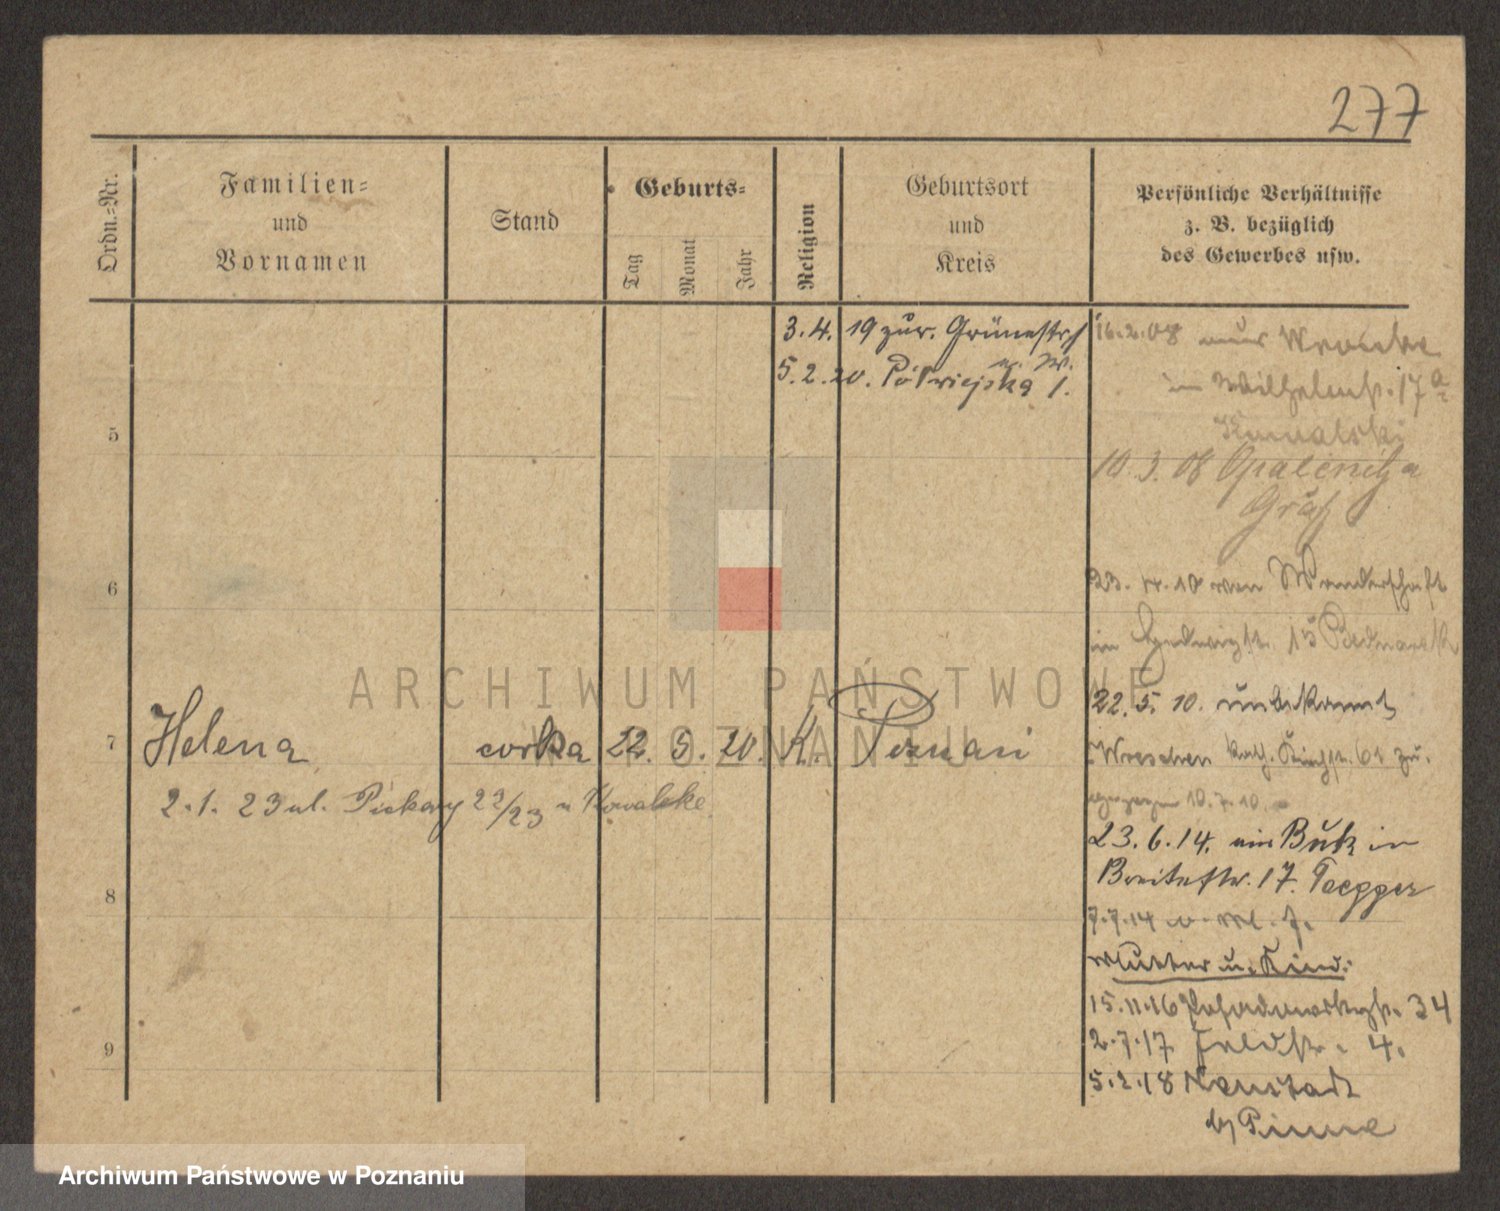 277
Ordn.=Nr.
Familien=
und
Vornamen
Stand
Geburts=
Tag
Monat
Jahr
Religion
Geburtsort
und
Kreis
Persönliche Verhältnisse
z. B. bezüglich
des Gewerbes usw.
3.4. 19 zur. Grünestr
5.2.20. Półwiejska 1.
16.2.08 aus Wronke
in Wilhelmstr. 17a
Kowalski
10.3.08 Opalenitza
Grätz
5
6
23. 4. 10 von Wanderschaft
in 15 Bednarek
22. 5. 10. unbekannt
Wreschen
10.7.10.
7
Helena
corka
22. 5. 20.
K.
Poznań
2.1. 23 ul. Piekary 22/23 Kowalske
23.6.14. aus Buk in
Breitestr. 17.
7.7.14
Mutter u. Kind.
15.11.16 Posadowskystr. 34
2.7.17 Feldstr. 4.
5.2.18 Neustadt
b/ Pinne
8
9
ARCHIWUM PAŃSTWOWE
W POZNANIU
Archiwum Państwowe w Poznaniu